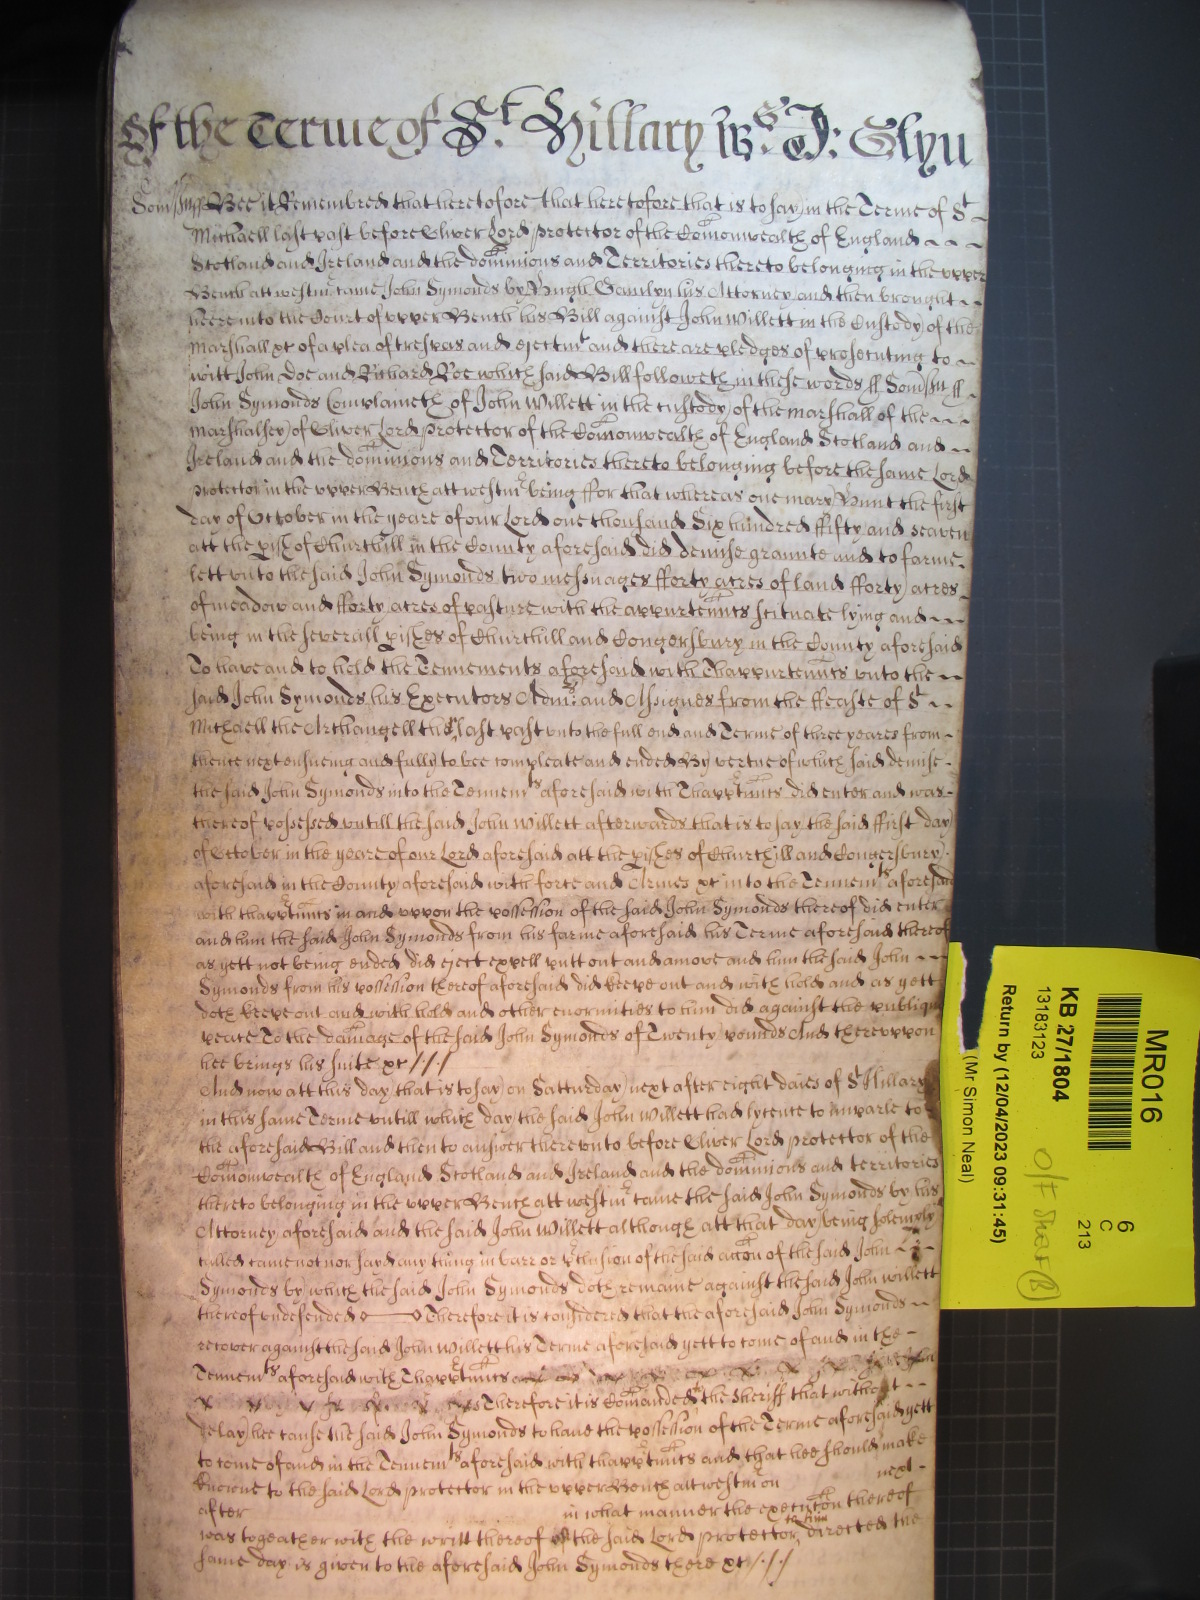 Of the Terme of St Hillary Ws J: Glyn
Somsett ss Bee it Remembred that heretofore that heretofore that is to say in the Terme of St
Michaell last past before Oliver Lord protector of the Comonwealth of England
Scotland and Ireland and the dominions and Territories thereto belonging in the upper
Bench att westmr came John Symonds by Hugh his Attorney and then brought
heere into the Court of upper Bench his Bill against John Willett in the Custody of the
Marshall xc of a plea of trespas and ejectmt and there are pledges of prosecuting to
witt John Doe and Richard Roe which said Bill followeth in these words ss Somset ss
John Symonds Complaineth of John Willett in the custody of the marshall of the
marshalsey of Oliver Lord protector of the Comonwealth of England Scotland and
Ireland and the dominions and Territories thereto belonging before the same Lord
protector in the upper Bench att westmr being ffor that whereas one mary Hunt the first
day of October in the yeare of our Lord one thousand Six hundred ffifty and seaven
att the pish of Churchill in the County aforesaid did demise graunte and to farme
lett unto the said John Symonds two messuages fforty acres of land fforty acres
of meadow and fforty acres of pasture with the appurtennts scituate lying and
being in the severall pishes of Churchill and Congersbury in the County aforesaid
To have and to hold the Tennements aforesaid with Thappurtennts unto the
said John Symonds his Executors Admrs and Assignes from the ffeaste of St
Michaell the Archangell then last past unto the full end and Terme of three yeares from
thence next ensueing and fully to bee compleate and ended By vertue of which said demise
the said John Symonds into the Tennemts aforesaid with Thapptnnts did enter and was
thereof possessed untill the said John Willett afterwards that is to say the said ffirst day
of October in the yeare of our Lord aforesaid att the pishes of Churchill and Congersbury
aforesaid in the County aforesaid with force and Armes xc into the Tennemts aforesaid
with thapptnnts in and uppon the possession of the said John Symonds thereof did enter
and him the said John Symonds from his farme aforesaid his Terme aforesaid thereof
as yett not being ended did eject expell putt out and amove and him the said John
Symonds from his possession thereof aforesaid did keepe out and with hold and as yett
doth keepe out and with hold and other enormities to him did against the publique
peace To the damage of the said John Symonds of Twenty pounds And thereuppon
hee brings his suite xc /././
And now att this day that is to say on Satturday next after eight daies of St Hillary
in this same Terme untill which day the said John Willett had lycence to imparle to
the aforesaid Bill and then to answer thereunto before Oliver Lord protector of the
Comonwealth of England Scotland and Ireland and the dominions and territories
thereto belonging in the upper Bench att westmr came the said John Symonds by his
Attorney aforesaid and the said John Willett although att that day being solemply
called came not nor sayd any thing in barr or pclusion of the said accon of the said John
Symonds by which the said John Symonds doth remaine against the said John willett
thereof undefended Therefore it is considered that the aforesaid John Symonds
recover against the said John Willett his Terme aforesaid yett to come of and in the
Tennemts aforesaid with Thapptnnts
Therefore it is Comanded the Sheriff that without
delay hee cause the said John Symonds to have the possession of the Terme aforesaid yett
to come of and in the Tennemts aforesaid with thapptnnts and that hee should make
knowne to the said Lord protector in the upper Bench att westmr on next
after in what manner the execucon thereof
was togeather with the writt thereof of the said Lord protector to him directed the
same day is given to the aforesaid John Symonds there xc /././
MR016
6
C
213
KB 27/1804
13183123
O/F Shelf (B)
Return by (12/04/2023 09:31:45)
(Mr Simon Neal)